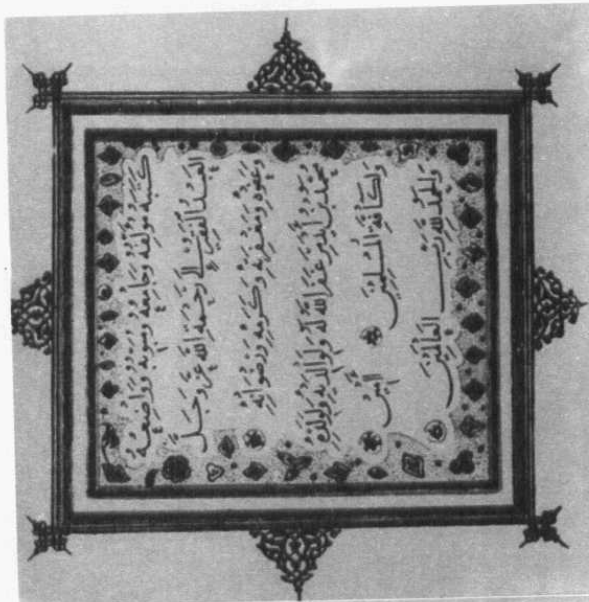 كتبه مؤلفه وجامعه ومبوبه وواضعه
العبد الفقير إلى رحمة الله عز وجل
وعفوه ومغفرته وكرمه ورضوانه
محمد بن أيدمر غفر الله له ولوالديه ولولده
ولكافة المسلمين آمين
والحمد لله رب العالمين